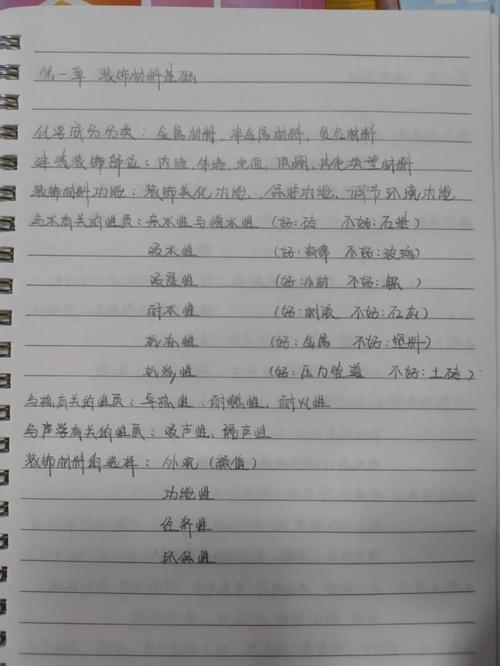 第一章 装饰材料基础
化学成分分类：金属材料、非金属材料、复合材料
建筑装饰部位：内墙、外墙、地面、顶棚、其他类型材料
装饰材料功能：装饰美化功能、保护功能、调节环境功能
与水有关的性质：亲水性与憎水性（好：砖 不好：石蜡）
吸水性（好：海绵 不好：玻璃）
吸湿性（好：木材 不好：
耐水性（好：树液 不好：石灰）
抗冻性（好：金属 不好：塑料）
抗渗性（好：压力管道 不好：土砖）
与热有关的性质：导热性、耐燃性、耐火性
与声学有关的性质：吸声性、隔声性
装饰材料的选择：外观（颜值）
功能性
经济性
环保性